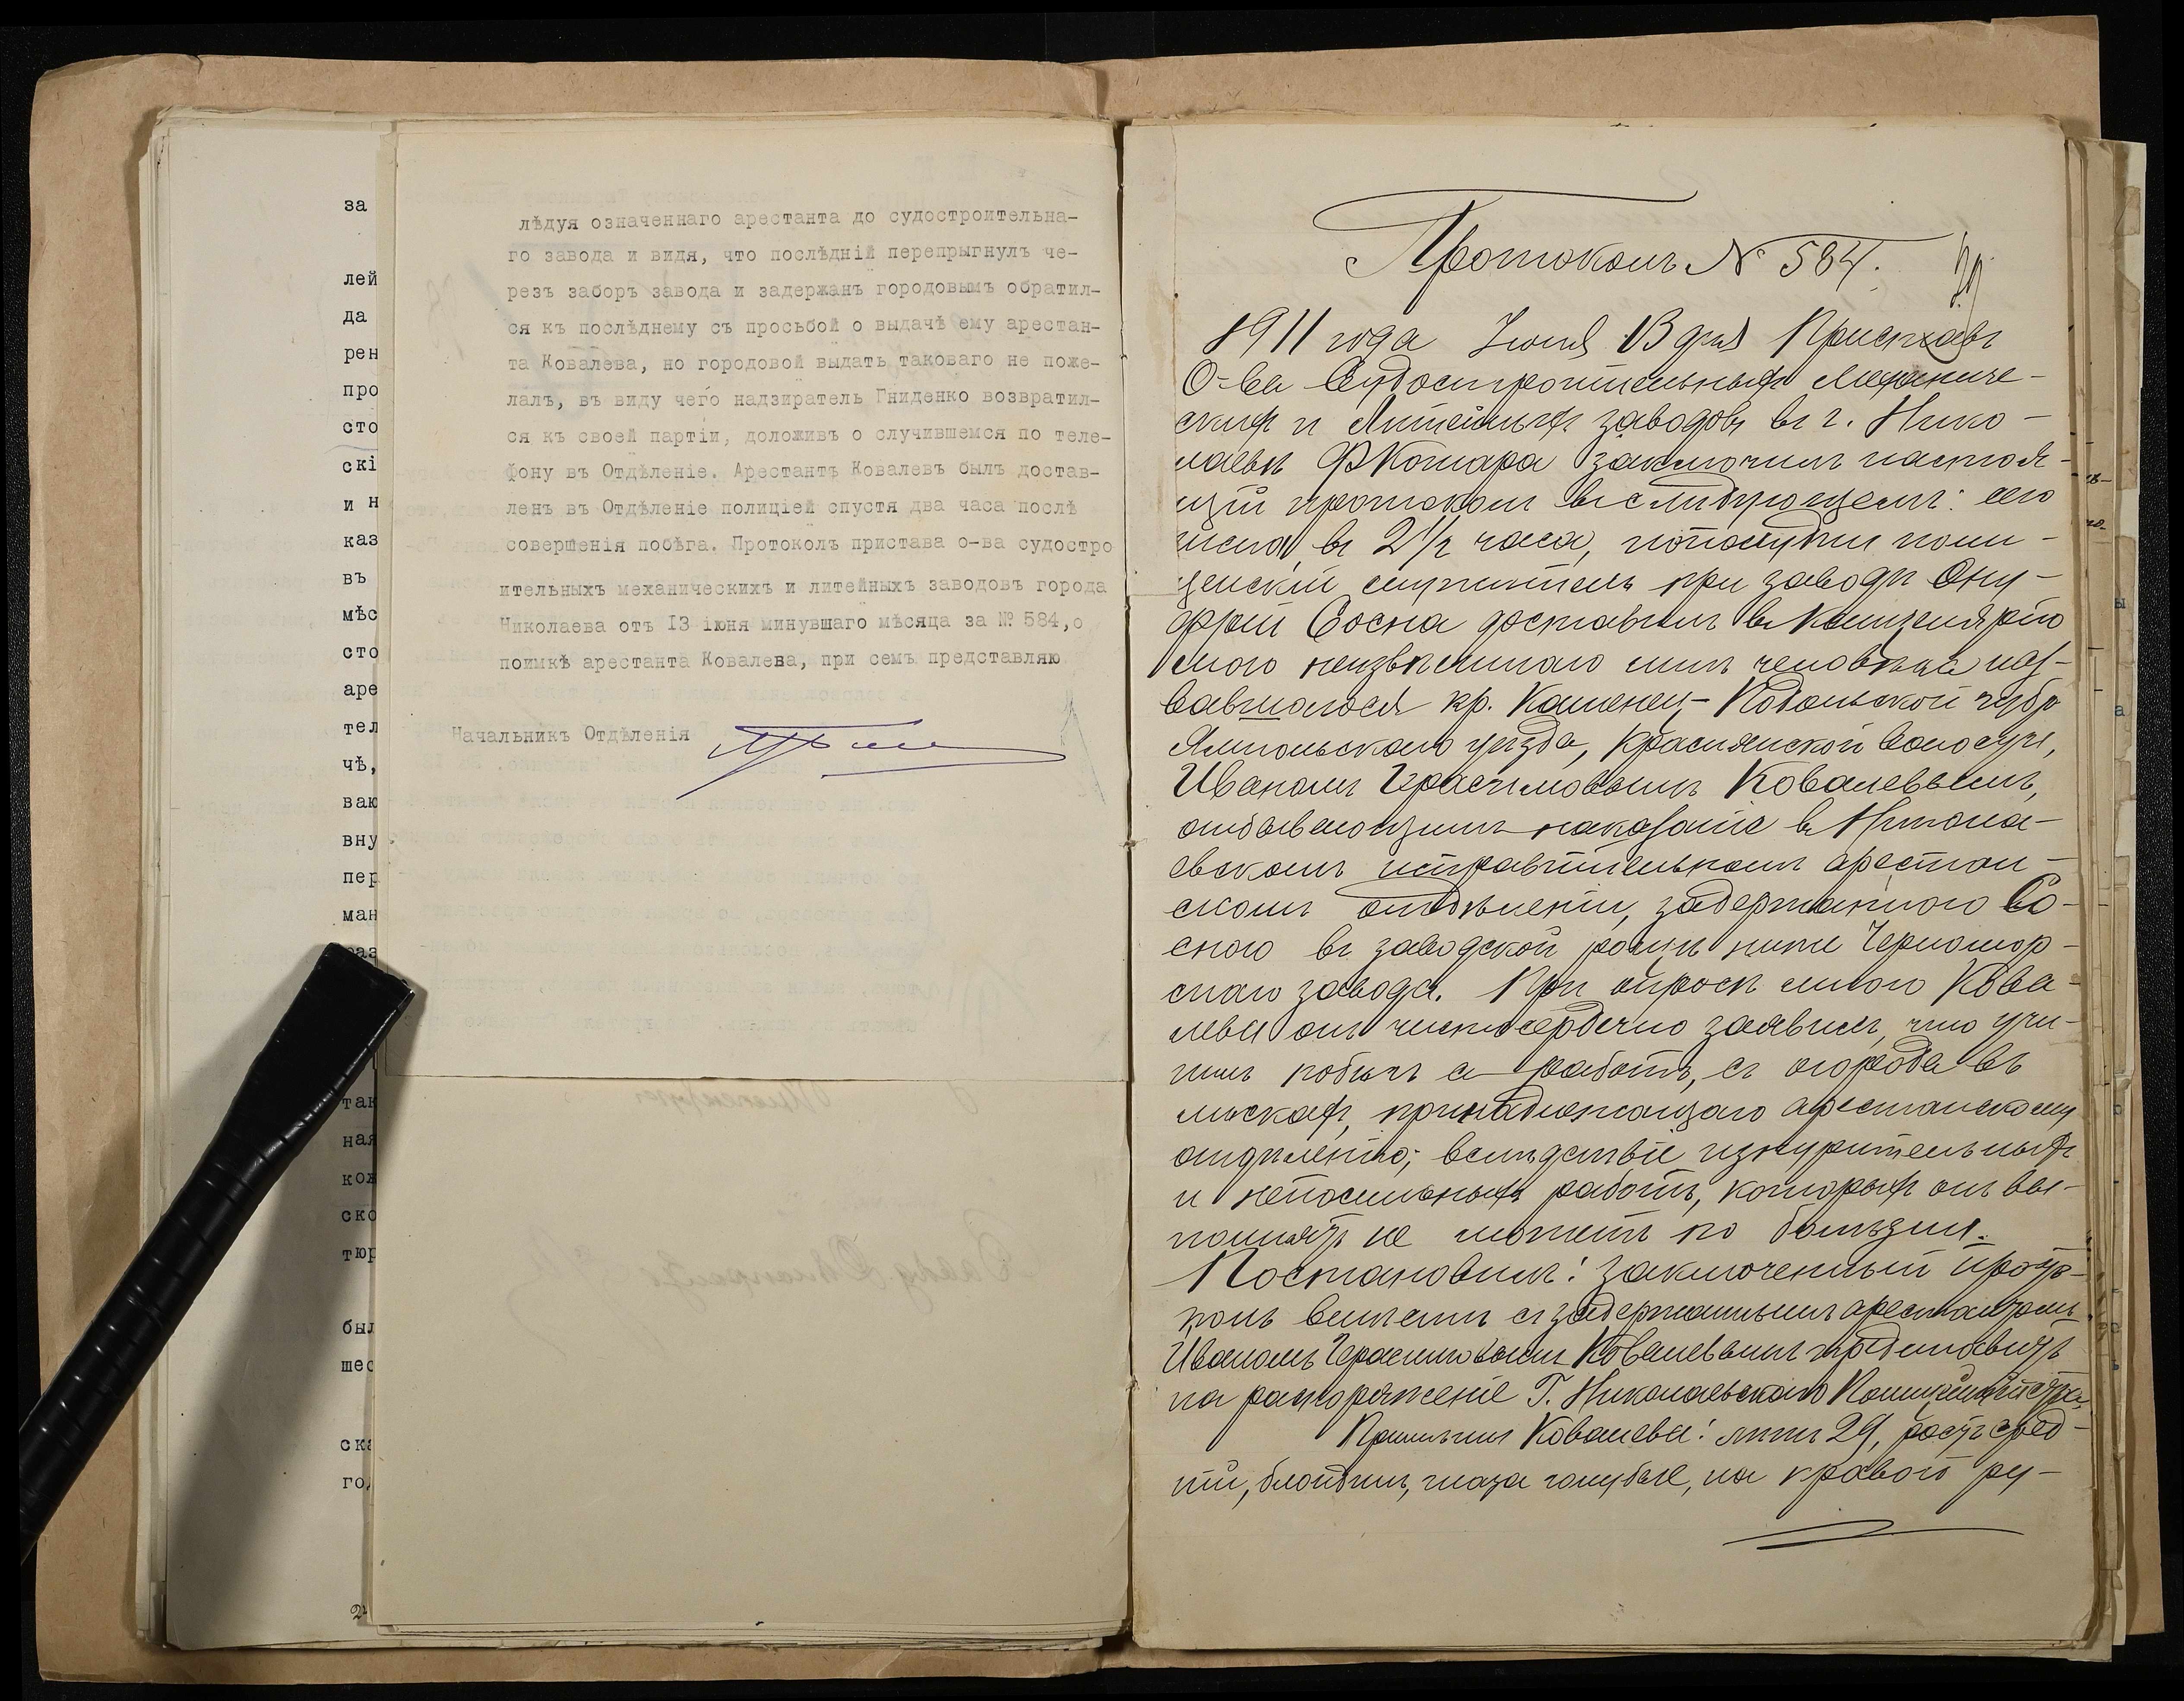 за
лей
да
рен
про
сто
скі
и н
каз
въ
мѣс
сто
аре
тел
чѣ,
ваю
вну
пер
ман
раз
так
ная
кож
ско
тюр
был
шес
ска
го
лѣдуя означеннаго арестанта до судостроительна-
го завода и видя, что послѣдній перепрыгнулъ че-
резъ заборъ завода и задержанъ городовымъ обратил-
ся къ послѣднему съ просьбой о выдачѣ ему арестан-
та Ковалева, но городовой выдать таковаго не поже-
лалъ, въ виду чего надзиратель Гниденко возвратил-
ся къ своей партіи, доложивъ о случившемся по теле-
фону въ Отдѣленіе. Арестантъ Ковалевъ былъ достав-
ленъ въ Отдѣленіе полиціей спустя два часа послѣ
совершенія побѣга. Протоколъ пристава о-ва судостро
ительныхъ механическихъ и литейныхъ заводовъ города
Николаева отъ 13 іюня минувшаго мѣсяца за № 584,о
поимкѣ арестанта Ковалева, при семъ представляю
Начальникъ Отдѣленія
Протоколъ № 584.
1911 года Іюня 13 дня Приставъ
О-ва Судостроительныхъ Механиче-
скихъ и Литейныхъ заводовъ въ г. Нико-
лаевѣ заключилъ настоя-
щій протоколъ въ слѣдующемъ: сего
числа, въ 2 1/2 часа, пополудни поли-
цейскій служитель при заводѣ Ону-
фрій Сосна доставилъ въ Канцелярію
мою неизвѣстнаго мнѣ человѣка наз-
вавшагося кр. Каменец-Подольской губ.
Ямпольскаго уѣзда, Краснянской волости,
Иваномъ Герасимовымъ Ковалевымъ,
отбывающимъ наказаніе въ Никола-
евскомъ исправительномъ арестан-
скомъ отдѣленіи, задержаннаго Со-
сною въ заводской рощѣ ниже Черномор-
скаго завода. При опросѣ мною Кова-
лева онъ чистосердечно заявилъ, что учи-
нилъ побѣгъ съ работъ, съ огорода въ
лѣскахъ, принадлежащаго арестанскому
отдѣленію; вслѣдствіе изнурительныхъ
и непосильныхъ работъ, которыхъ онъ вы-
полнять не можетъ по болѣзни.
Постановилъ: заключенный прото-
колъ вмѣстѣ съ задержаннымъ арестантомъ
Иваномъ Герасимовымъ Ковалевымъ представить
на распоряженіе Г. Николаевскаго Полиціймейстера.
Примѣты Ковалева: лѣтъ 29, ростъ сред-
ній, блондинъ, глаза голубые, на правой ру-